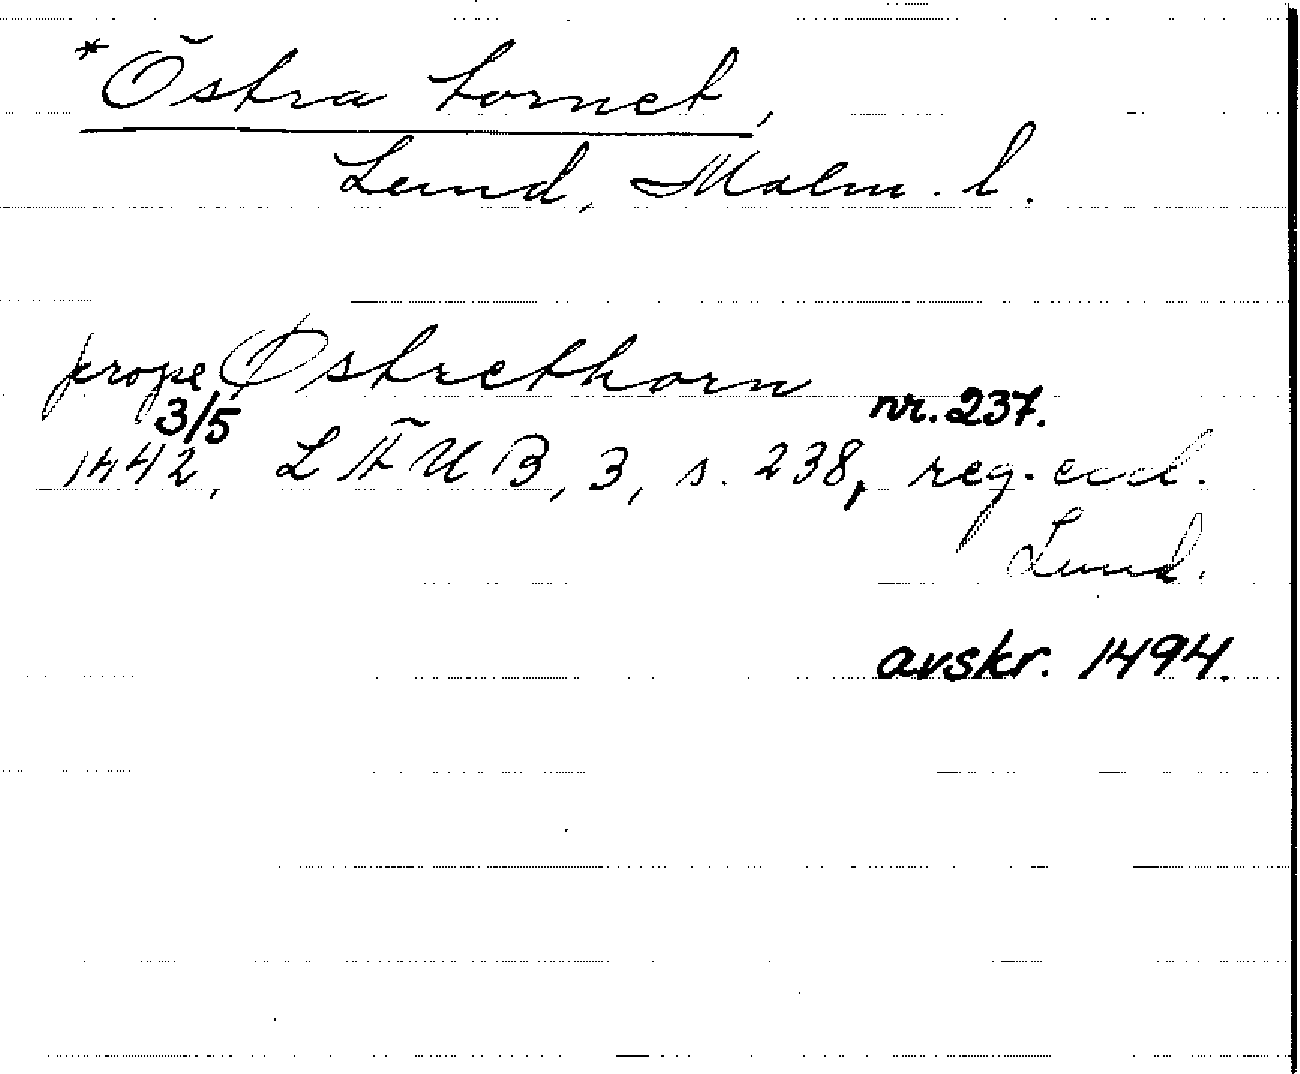 *Östra tornet,
Lund, Malm. l.
prope Østrethorn
3/5 nr. 237.
1442, LÄUB, 3, s. 238, reg. eccl.
Lund.
avskr. 1494.